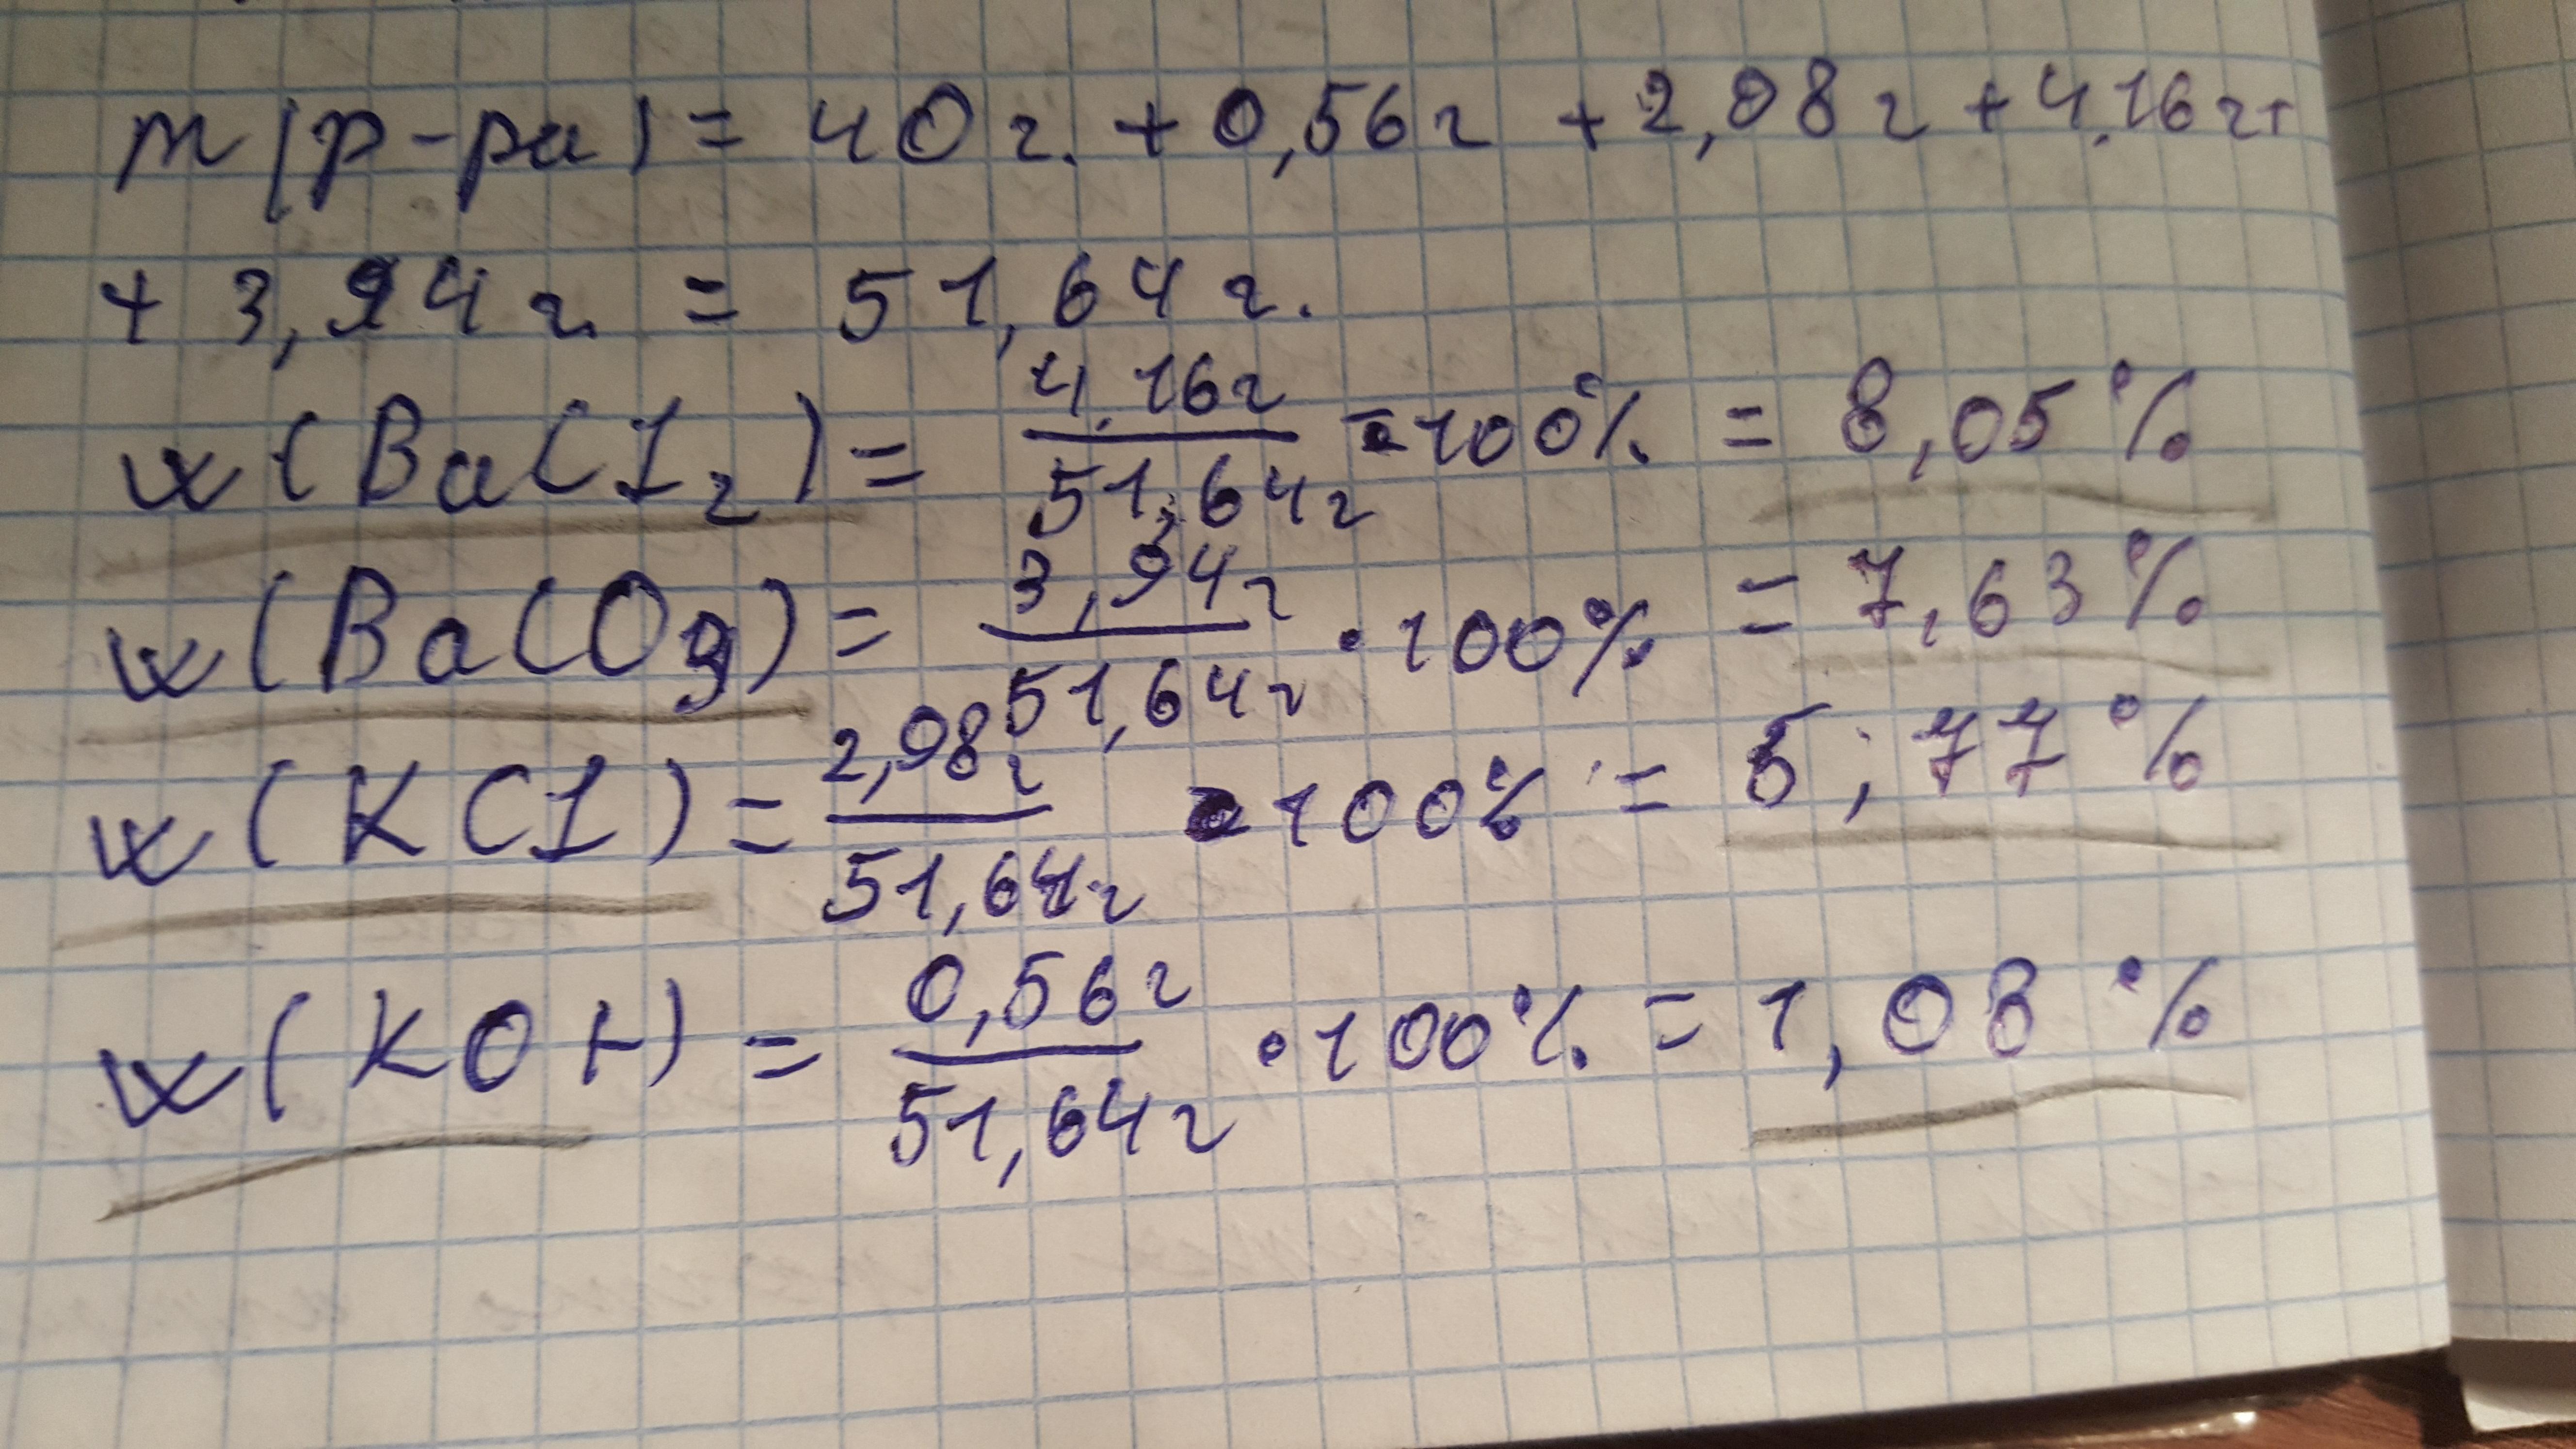 m(р-ра) = 40 г. + 0,56 г + 2,08 г + 4,16 г +
+ 3,94 г. = 51,64 г.
w(BaCl₂) = 4,16 г / 51,64 г · 100% = 8,05%
w(BaCO₃) = 3,94 г / 51,64 г · 100% = 7,63%
w(KCl) = 2,98 г / 51,64 г · 100% = 5,77%
w(KOH) = 0,56 г / 51,64 г · 100% = 1,08%